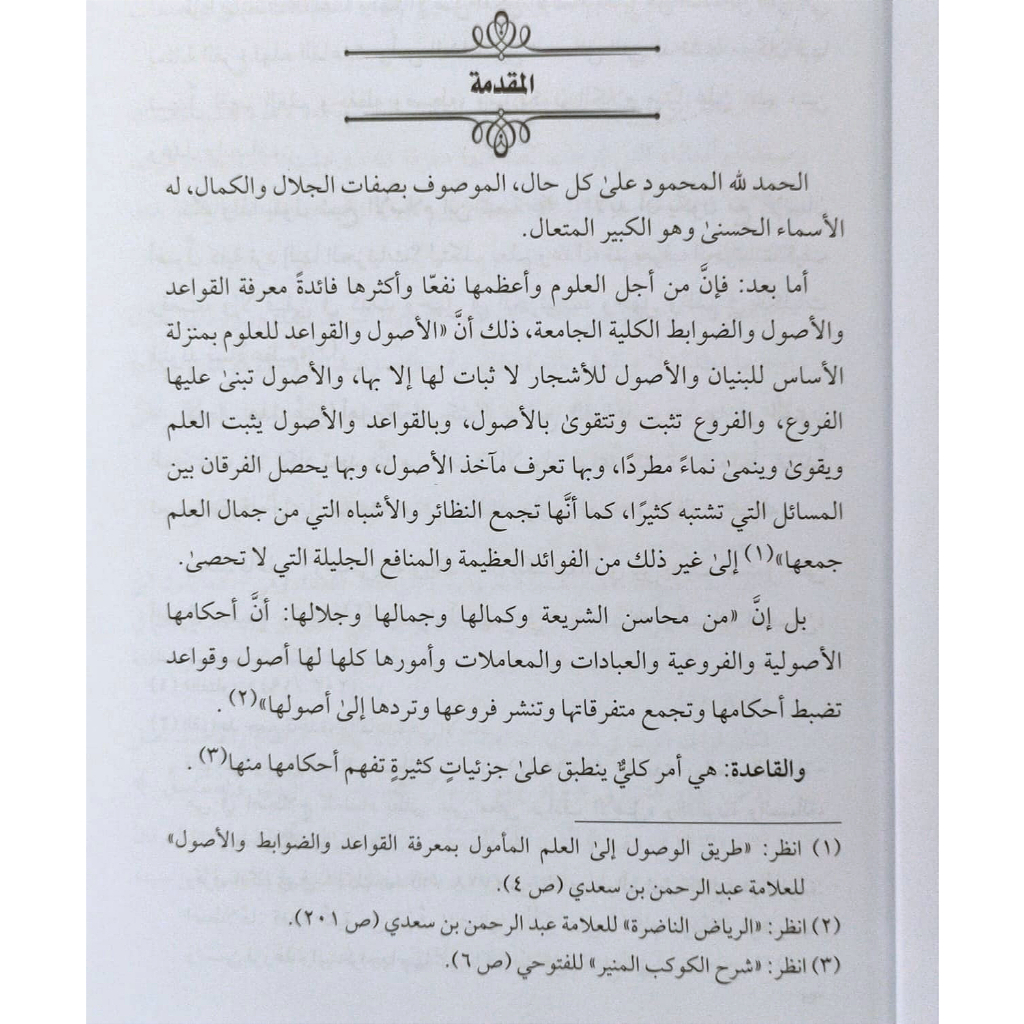 المقدمة
الحمد لله المحمود علىٰ كل حال، الموصوف بصفات الجلال والكمال، له
الأسماء الحسنىٰ وهو الكبير المتعال.
أما بعد: فإنَّ من أجل العلوم وأعظمها نفعًا وأكثرها فائدةً معرفة القواعد
والأصول والضوابط الكلية الجامعة، ذلك أنَّ «الأصول والقواعد للعلوم بمنزلة
الأساس للبنيان والأصول للأشجار لا ثبات لها إلا بها، والأصول تبنىٰ عليها
الفروع، والفروع تثبت وتتقوىٰ بالأصول، وبالقواعد والأصول يثبت العلم
ويقوىٰ وينمىٰ نماءً مطردًا، وبها تعرف مآخذ الأصول، وبها يحصل الفرقان بين
المسائل التي تشتبه كثيرًا، كما أنَّها تجمع النظائر والأشباه التي من جمال العلم
جمعها»(١) إلىٰ غير ذلك من الفوائد العظيمة والمنافع الجليلة التي لا تحصىٰ.
بل إنَّ «من محاسن الشريعة وكمالها وجمالها وجلالها: أنَّ أحكامها
الأصولية والفروعية والعبادات والمعاملات وأمورها كلها لها أصول وقواعد
تضبط أحكامها وتجمع متفرقاتها وتنشر فروعها وتردها إلىٰ أصولها»(٢).
والقاعدة: هي أمر كليٌّ ينطبق علىٰ جزئياتٍ كثيرةٍ تفهم أحكامها منها(٣).
(١) انظر: «طريق الوصول إلىٰ العلم المأمول بمعرفة القواعد والضوابط والأصول»
للعلامة عبد الرحمن بن سعدي (ص ٤).
(٢) انظر: «الرياض الناضرة» للعلامة عبد الرحمن بن سعدي (ص ٢٠١).
(٣) انظر: «شرح الكوكب المنير» للفتوحي (ص ٦).